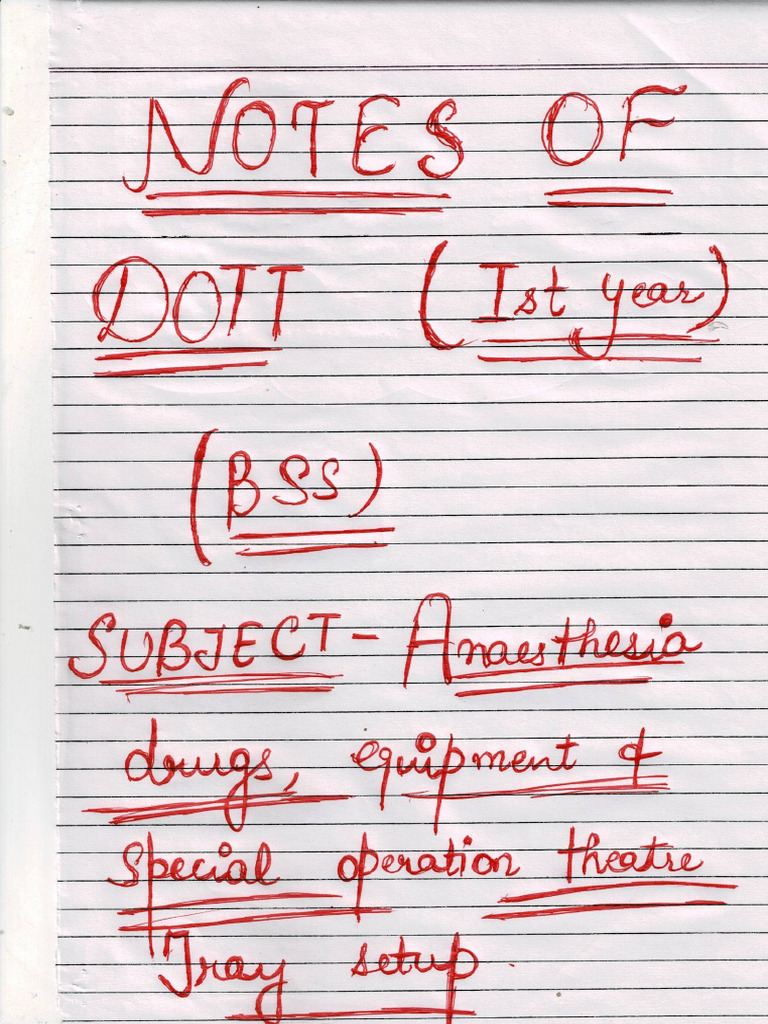 NOTES OF
DOTT (Ist year)
(BSS)
SUBJECT - Anaesthesia
drugs, equipment &
special operation theatre
Tray setup.